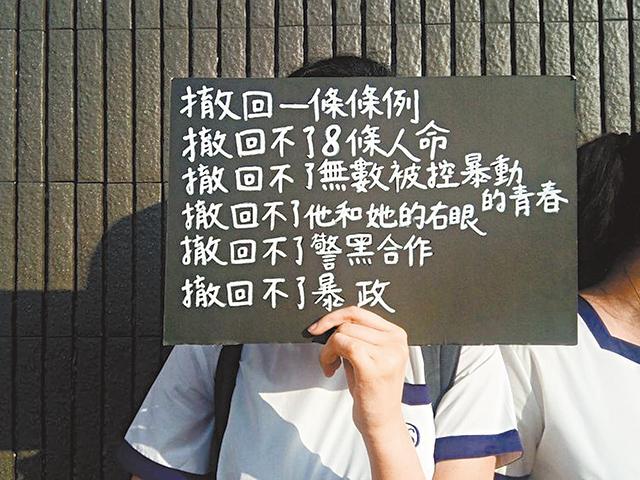 撤回一條條例
撤回不了8條人命
撤回不了無數被控暴動的青春
撤回不了他和她的右眼
撤回不了警黑合作
撤回不了暴政